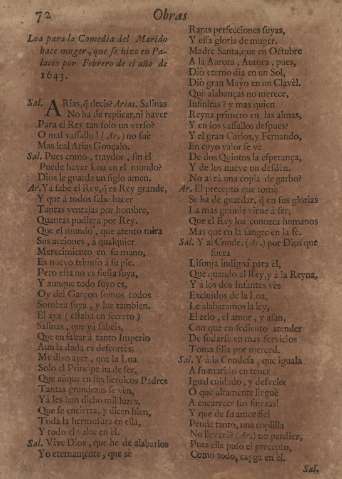 72 Obras
Loa para la Comedia del Marido
haze muger, que se hizo en Pa-
lacio por Febrero de el año de
1643.
Sal. ARias, q̃ dezís? Arias. Salinas
No ha de replicar, ni haver
Para el Rey tan solo un verso?
O neal vassallo! (Ar.) no fue
Mas leal Arias Gonçalo.
Sal. Pues como, traydor, sin él
Puede haver Loa en el mundo?
Dios le guarda un siglo amen.
Ar. Ya sabe el Rey, q̃ es Rey grande,
Y que à todos sabe hazer
Tantas ventajas por hombre,
Quantas pudiera por Rey.
Que el mundo, que atento mira
Sus acciones, à qualquier
Merecimiento en su mano,
Es nuevo tributo à su pie.
Pero esta no es fiesta suya,
Y aunque todo suyo es,
Oy del Garçon somos todos
Sombra suya, y luz tambien.
El aya (estaba en secreto)
Salinas, que ya sabeis,
Que en saber à tanto Imperio
Aun la dada es deforten.
Me diso ayer, que la Loa
Solo el Principe ha de ser,
Que aunque en sus heroicos Padres
Tantas grandezas se ven,
Ya les han dicho mil vezes,
Que se encierra, y dizen bien,
Toda la hermosura en ella,
Y todo el valor en él.
Sal. Vive Dios, que he de alabarlos
Yo eternamente, que sè
Raras perfecciones suyas,
Y essa gloria de muger.
Madre Santa, que en Octubre
A la Aurora, Aurora, pues,
Diò eterno dia en un Sol,
Diò gran Mayo en un Clavèl.
Què alabanças no merece,
Infinitas? y mas quien
Reyna primero en las almas,
Y en los vassallos despues?
Y el gran Carlos, y Fernando,
En cuyo valor se vè
De dos Quintos la esperança,
Y de los nueve un desdèn.
No avrà una copia de garbo?
Ar. El precepto que tomò
Se ha de guardar, q̃ en sus glorias
La mas grande viene à ser,
Que el Rey los conozca humanos
Mas que en la sangre en la fe.
Sal. Y al Conde. (Ar.) por Dios que
fuera
Lisonja indigna para èl,
Que quando al Rey, y à la Reyna,
Y à los dos Infantes vès
Excluidos de la Loa,
Le alabaramos la ley,
El zelo, el amor, y afan,
Con que en seducir atender
De sudarlo en mas servicios
Toma silla por merced.
Sal. Y à la Condesa, que iguala
A su marido en tener
Igual cuidado, y desvelo:
O què altamente lleguè
A encarecer sus finezas!
Y que de su amor fiel
Pende tanto, una coplilla
No llevarà? (Ar.) no pardiez,
Pues ella puso el precepto,
Como todo, cayga en èl.
Sal.